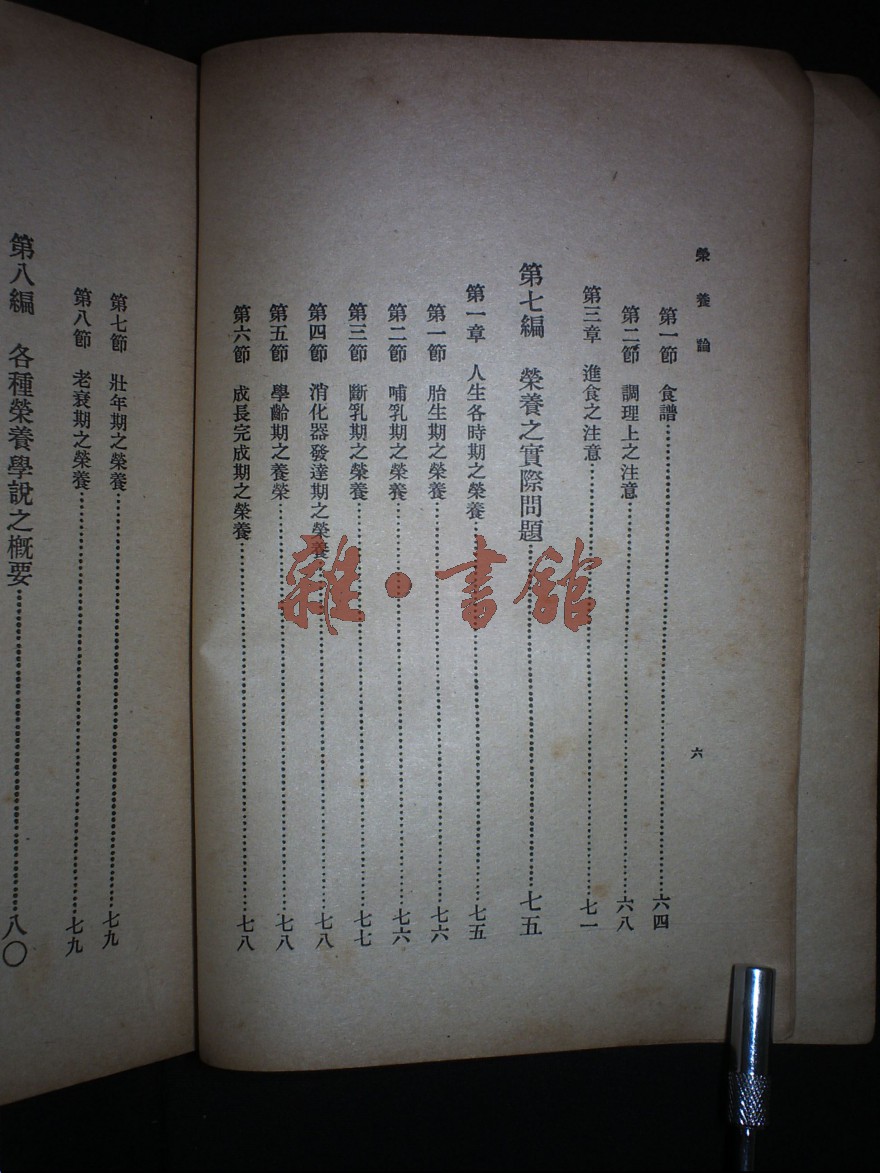 榮養論
六
第一節 食譜……六四
第二節 調理上之注意……六八
第三章 進食之注意……七一
第七編 榮養之實際問題……七五
第一章 人生各時期之榮養……七五
第一節 胎生期之榮養……七六
第二節 哺乳期之榮養……七六
第三節 斷乳期之榮養……七七
第四節 消化器發達期之榮養……七八
第五節 學齡期之養榮……七八
第六節 成長完成期之榮養……七八
第七節 壯年期之榮養……七九
第八節 老衰期之榮養……七九
第八編 各種榮養學說之概要……八〇
雜·書館